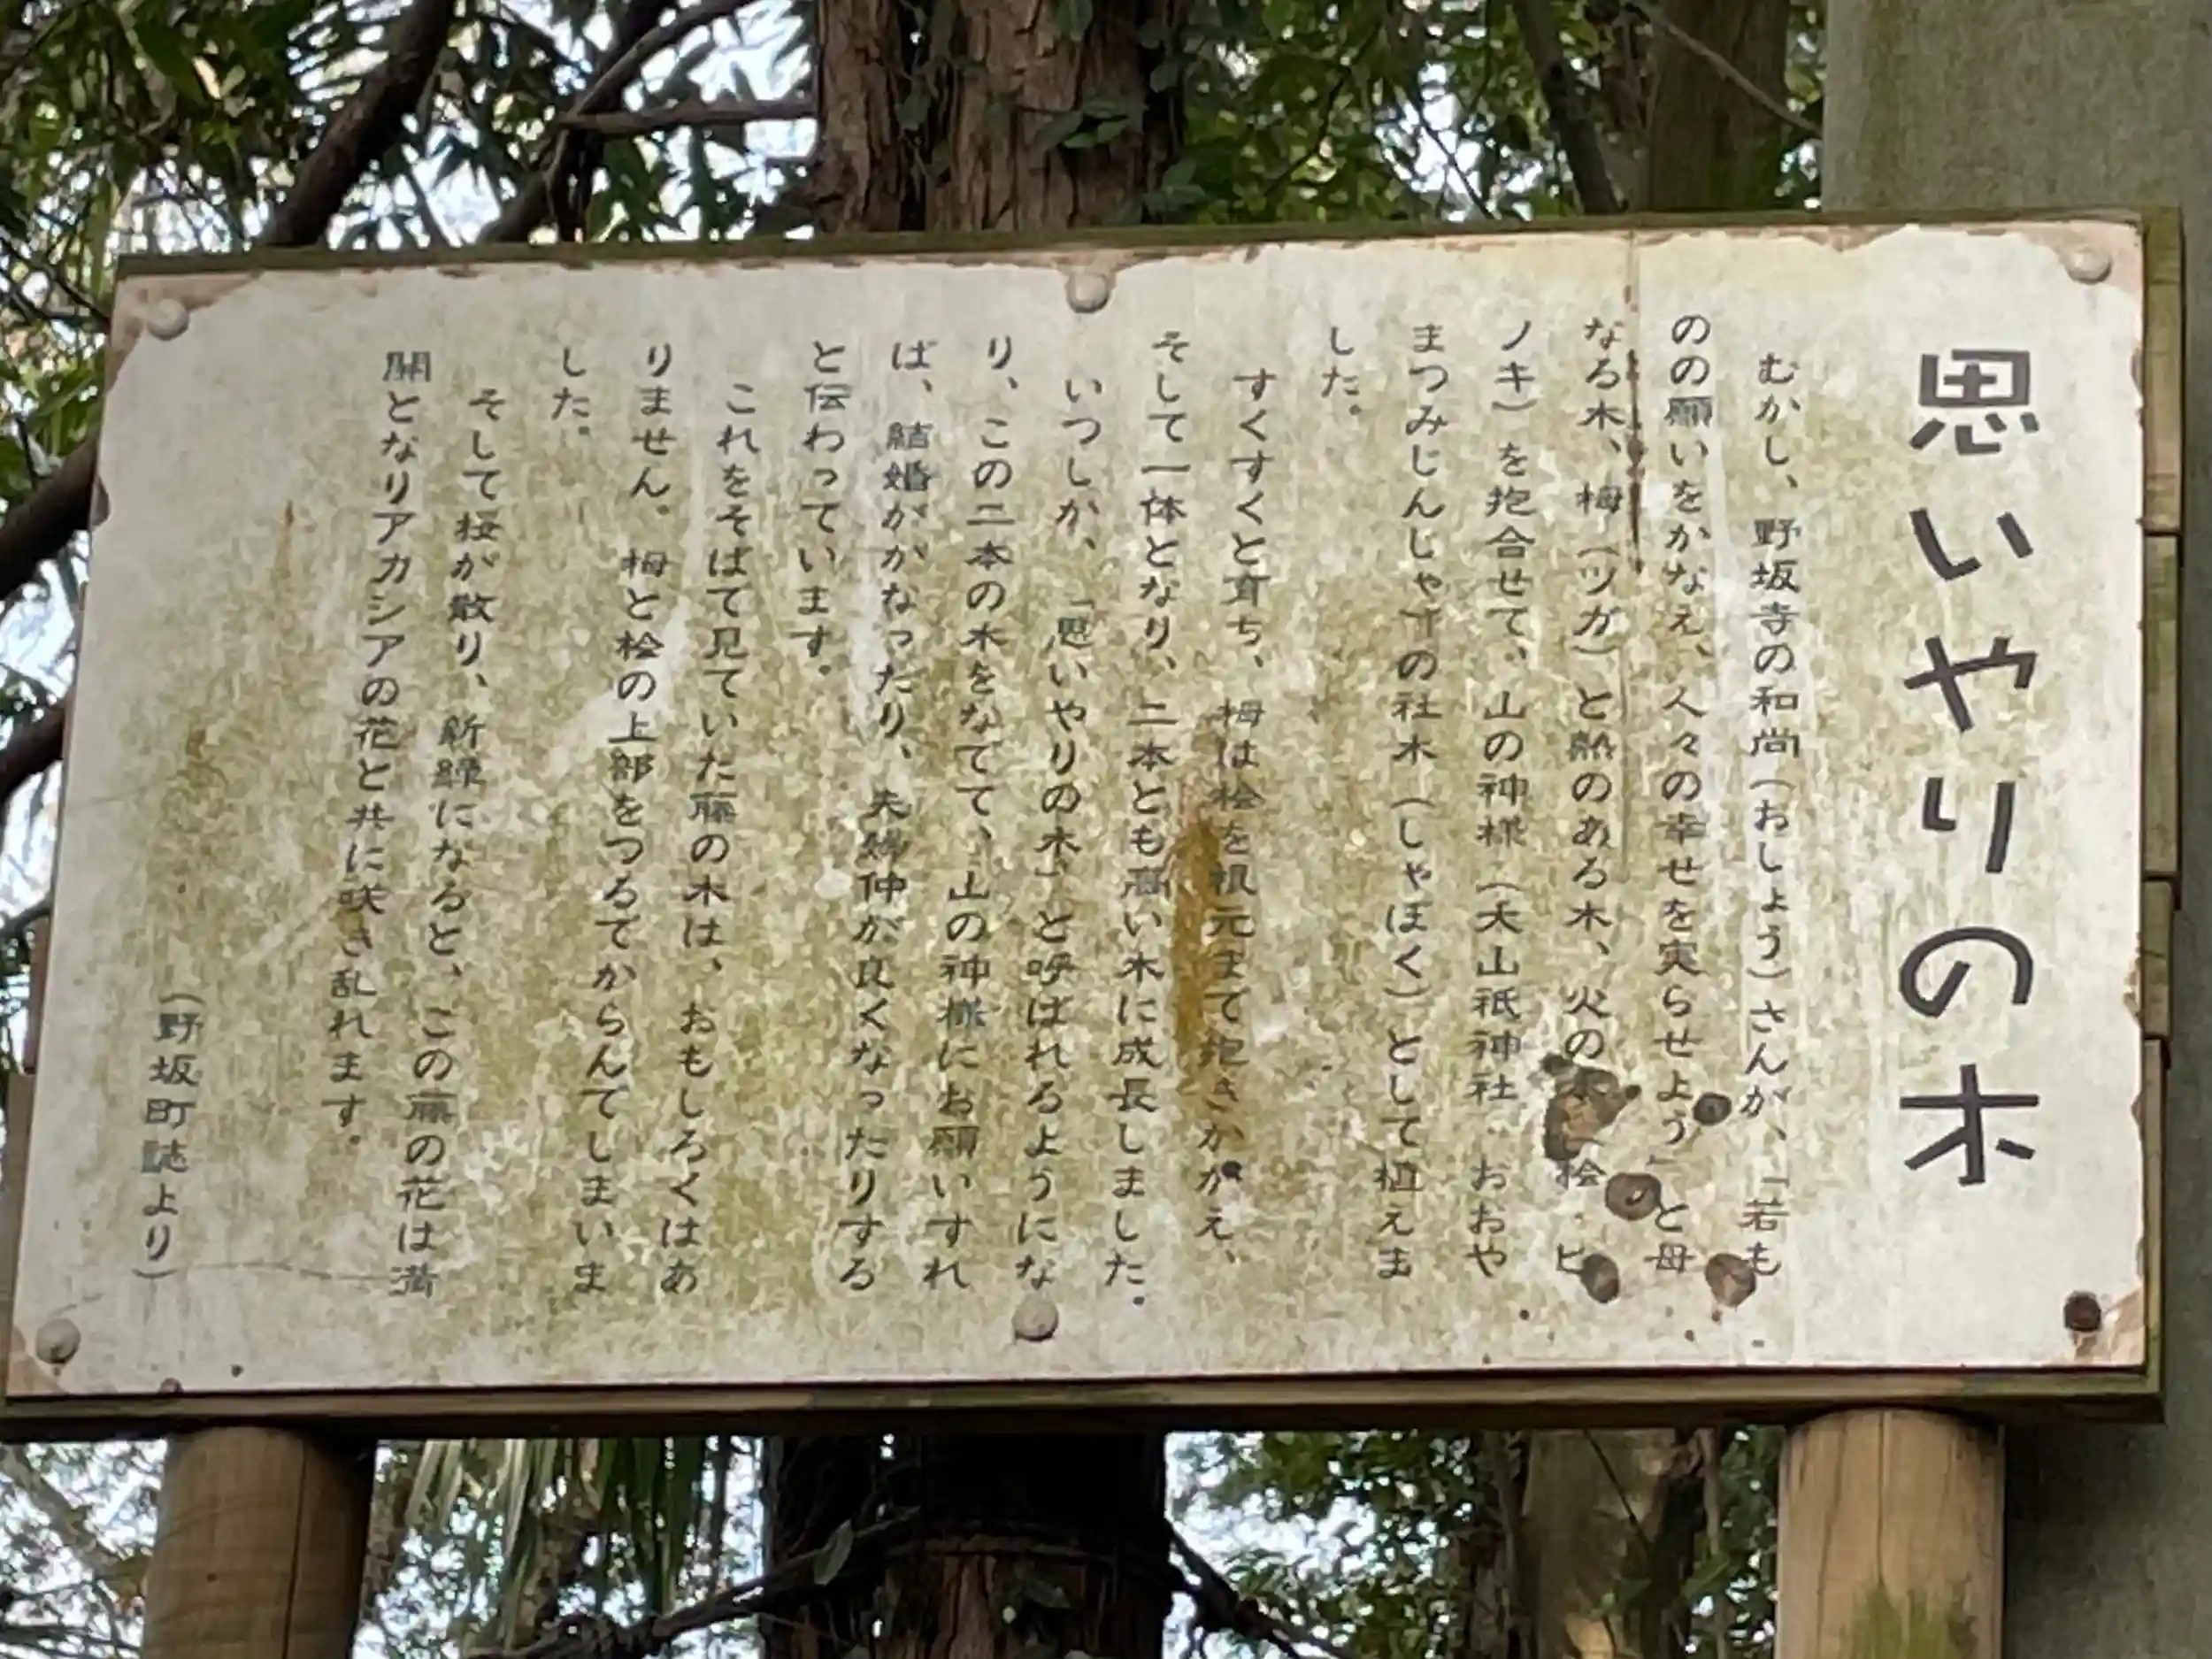 思いやりの木
むかし、野坂寺の和尚（おしょう）さんが、「若も
のの願いをかなえ、人々の幸せを実らせよう」と母
なる木、栂（ツガ）と熱のある木、火の木（桧・ヒ
ノキ）を抱合せて、山の神様（大山祇神社・おおや
まつみじんじゃ）の社木（しゃぼく）として植えま
した。
すくすくと育ち、栂は桧を根元まで抱きかかえ、
そして一体となり、二本とも高い木に成長しました。
いつしか、「思いやりの木」と呼ばれるようにな
り、この二本の木をなでて、山の神様にお願いすれ
ば、結婚がかなったり、夫婦仲が良くなったりする
と伝わっています。
これをそばで見ていた藤の木は、おもしろくはあ
りません。栂と桧の上部をつるでからんでしまいま
した。
そして桜が散り、新緑になると、この藤の花は満
開となりアカシアの花と共に咲き乱れます。
（野坂町誌より）